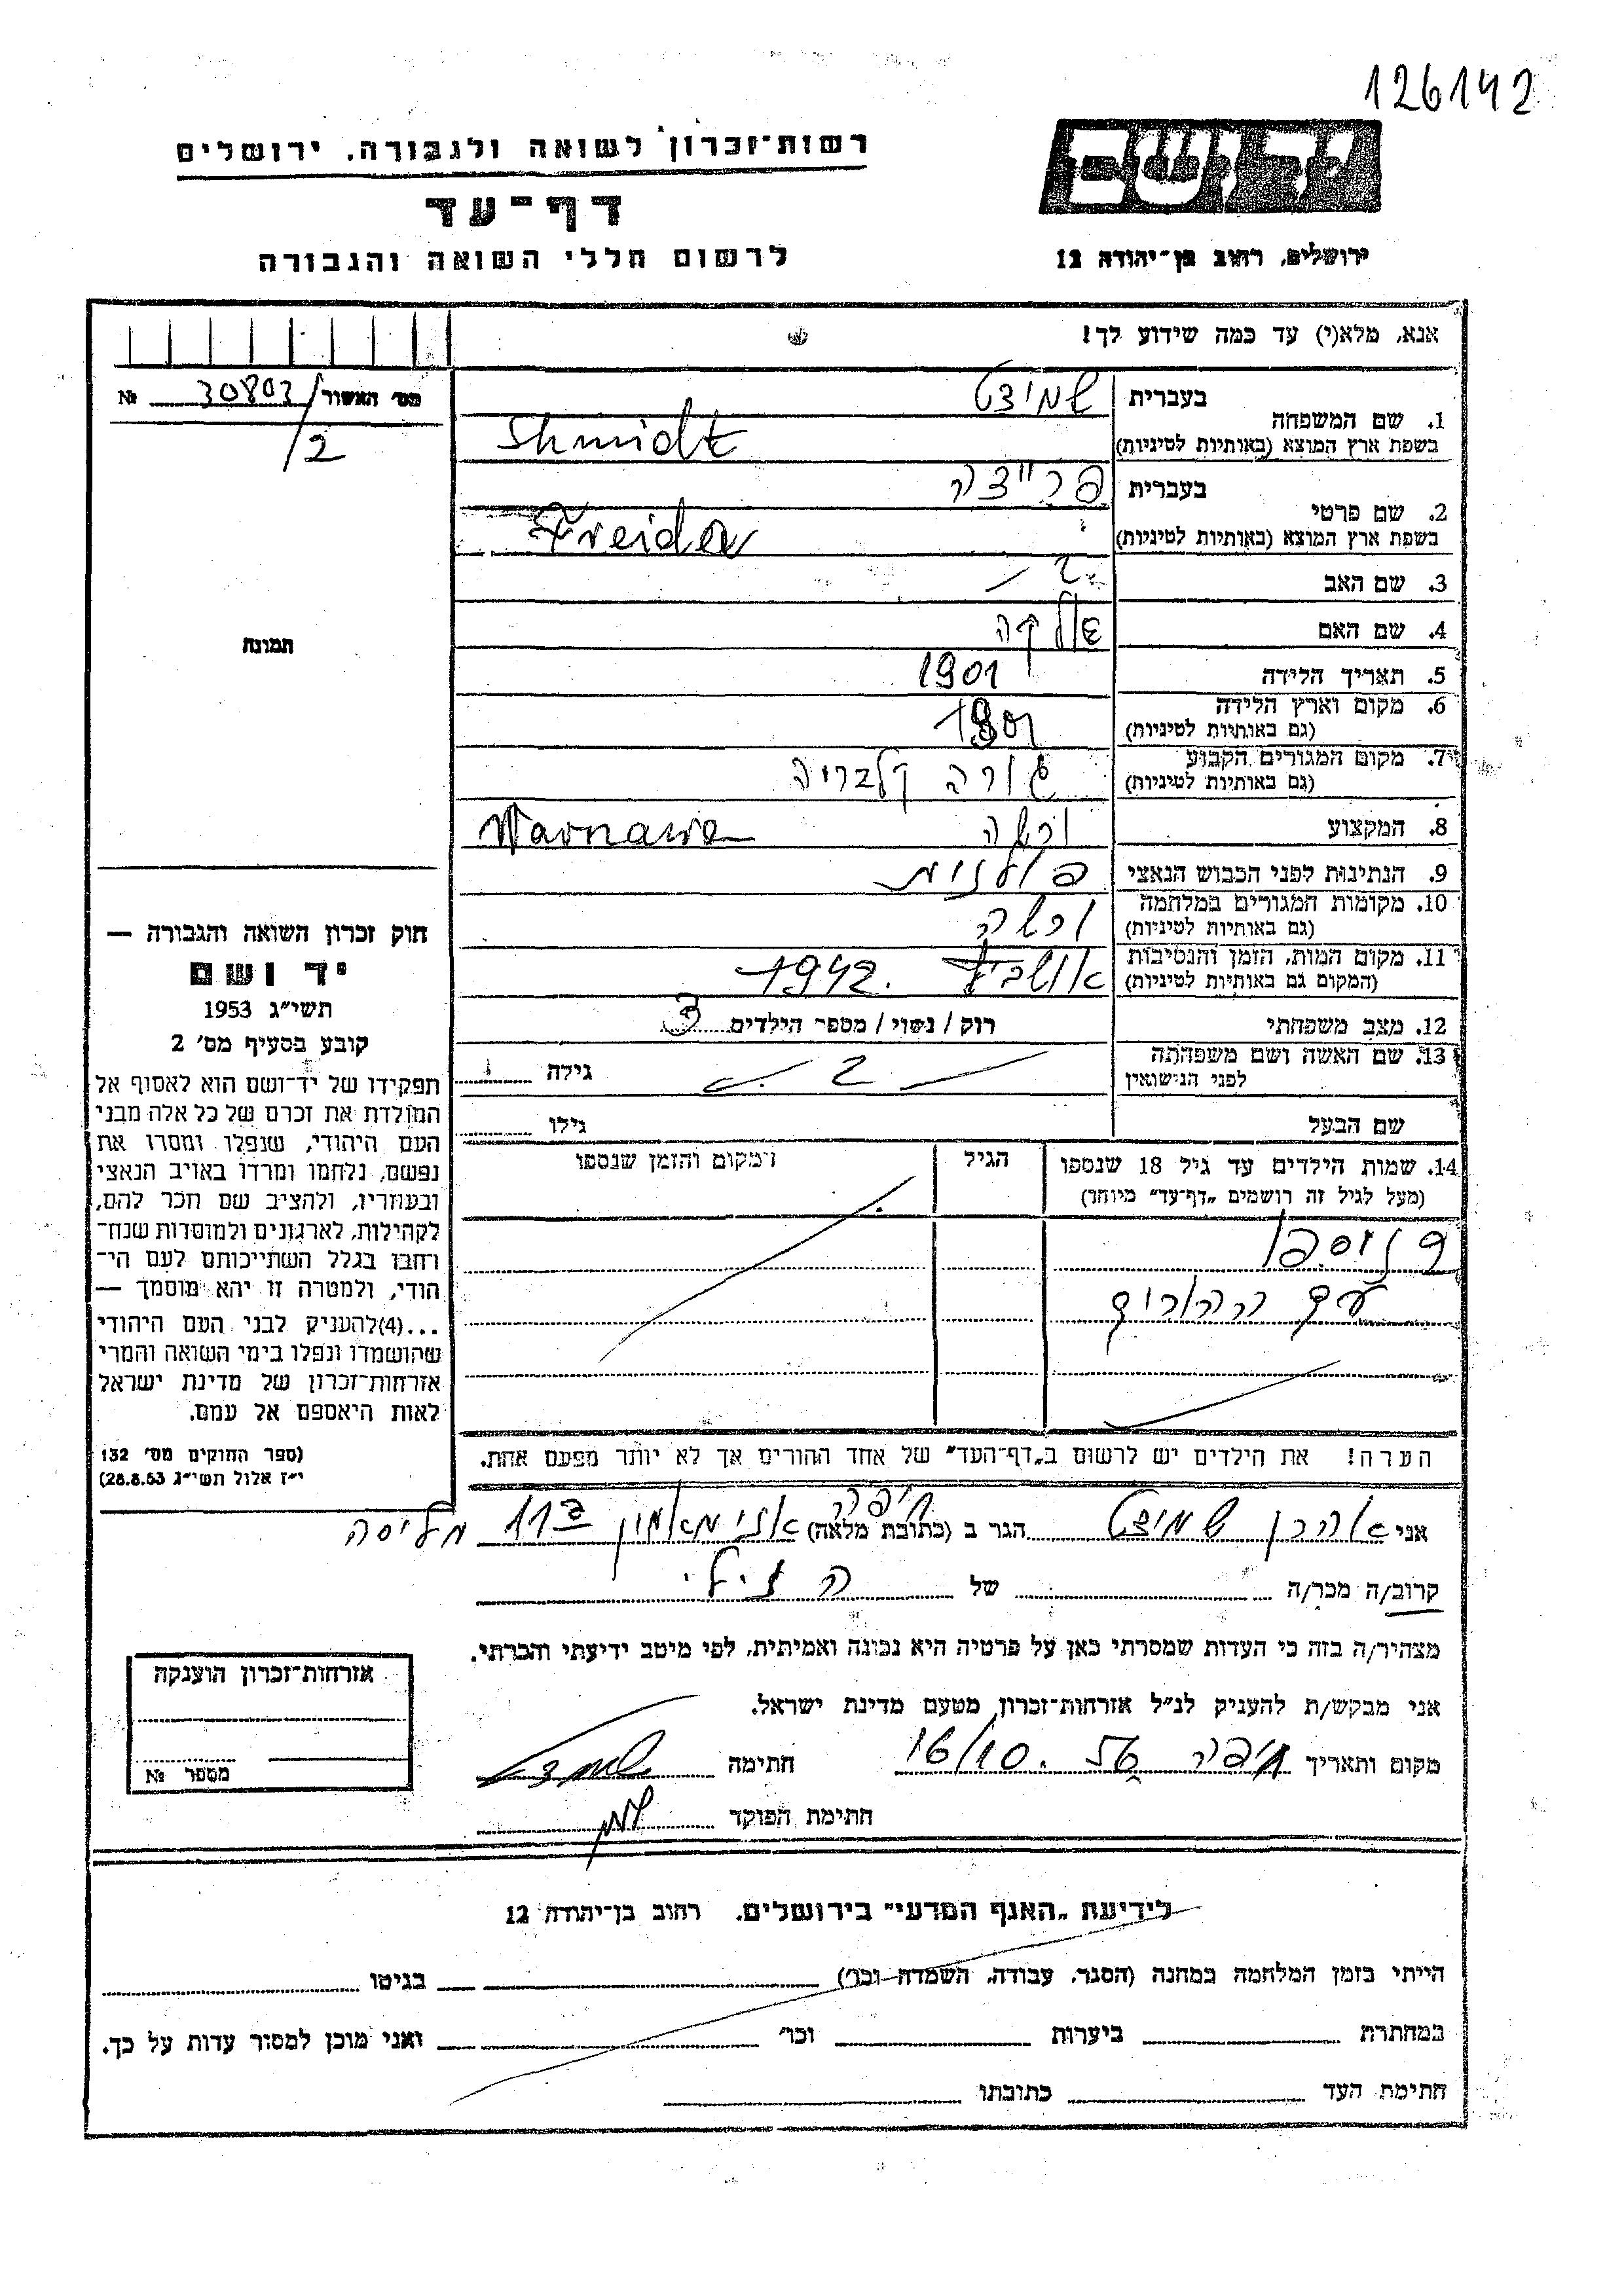 126142
יד ושם
רשות־זכרון לשואה ולגבורה, ירושלים
דף־עד
לרשום חללי השואה והגבורה
ירושלים, רחוב בן־יהודה 12
אנא, מלא(י) עד כמה שידוע לך!
מס׳ האשור 30803/ №
/2
1. שם המשפחה
בעברית שמידט
בשפת ארץ המוצא (באותיות לטיניות) Shmidt
2. שם פרטי
בעברית פריידה
בשפת ארץ המוצא (באותיות לטיניות) Freida
3. שם האב
4. שם האם
5. תאריך הלידה 1901
6. מקום וארץ הלידה
(גם באותיות לטיניות)
7. מקום המגורים הקבוע
(גם באותיות לטיניות) גורה קלבריה
8. המקצוע ורשה
9. הנתינות לפני הכבוש הנאצי פולנית
10. מקומות המגורים במלחמה
(גם באותיות לטיניות) ורשה
11. מקום המות, הזמן והנסיבות
(המקום גם באותיות לטיניות) 1942.
12. מצב משפחתי רוק / נשוי / מספר הילדים 3
13. שם האשה ושם משפחתה
לפני הנישואין גילה
שם הבעל גילו
14. שמות הילדים עד גיל 18 שנספו
(מעל לגיל זה רושמים „דף־עד״ מיוחד)
הגיל
המקום והזמן שנספו
נוספו
עם ההורים
הערה! את הילדים יש לרשום ב„דף־העד״ של אחד ההורים אך לא יותר מפעם אחת.
תמונה
חוק זכרון השואה והגבורה —
יד ושם
תשי״ג 1953
קובע בסעיף מס׳ 2
תפקידו של יד־ושם הוא לאסוף אל
המולדת את זכרם של כל אלה מבני
העם היהודי, שנפלו ומסרו את
נפשם, נלחמו ומרדו באויב הנאצי
ובעוזריו, ולהציב שם וזכר להם,
לקהילות, לארגונים ולמוסדות שנח־
רבו בגלל השתייכותם לעם הי־
הודי, ולמטרה זו יהא מוסמך —
...(4)להעניק לבני העם היהודי
שהושמדו ונפלו בימי השואה והמרי
אזרחות־זכרון של מדינת ישראל
לאות היאספם אל עמם.
(ספר החוקים מס׳ 132
י״ז אלול תשי״ג 28.8.53)
אני אהרן שמידט הגר ב (כתובת מלאה) חיפה 11
קרוב/ה מכר/ה של
מצהיר/ה בזה כי העדות שמסרתי כאן על פרטיה היא נכונה ואמיתית, לפי מיטב ידיעתי והכרתי.
אני מבקש/ת להעניק לנ״ל אזרחות־זכרון מטעם מדינת ישראל.
מקום ותאריך חיפה 16/10. 56 חתימה
חתימת הפוקד
אזרחות־זכרון הוענקה
מספר №
לידיעת „האגף המדעי״ בירושלים, רחוב בן־יהודה 12
הייתי בזמן המלחמה במחנה (הסגר, עבודה, השמדה וכו׳) בגיטו
במחתרת ביערות וכו׳ ואני מוכן למסור עדות על כך.
חתימת העד כתובתו